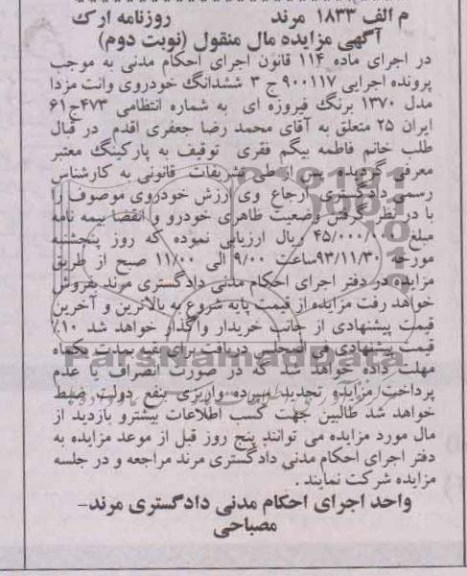 م الف ۱۸۳۳ مرند روزنامه ارک
آگهی مزایده مال منقول (نوبت دوم)
در اجرای ماده ۱۱۴ قانون اجرای احکام مدنی به موجب
پرونده اجرایی ۹۰۰۱۱۷ ج ۳ ششدانگ خودروی وانت مزدا
مدل ۱۳۷۰ برنگ فیروزه ای به شماره انتظامی ۴۷۳ج۶۱
ایران ۲۵ متعلق به آقای محمد رضا جعفری اقدم در قبال
طلب خانم فاطمه بیگم فقری توقیف به پارکینگ معتبر
معرفی گردیده پس از طی تشریفات قانونی به کارشناس
رسمی دادگستری ارجاع وی ارزش خودروی موصوف را
با در نظر گرفتن وضعیت ظاهری خودرو و انقضا بیمه نامه
مبلغ ۴۵/۰۰۰/۰۰۰ ریال ارزیابی نموده که روز پنجشنبه
مورخه ۹۳/۱۱/۳۰ساعت ۹/۰۰ الی ۱۱/۰۰ صبح از طریق
مزایده در دفتر اجرای احکام مدنی دادگستری مرند بفروش
خواهد رفت مزایده از قیمت پایه شروع به بالاترین و آخرین
قیمت پیشنهادی از جانب خریدار واگذار خواهد شد ۱۰٪
قیمت پیشنهادی فی المجلس دریافت برای بقیه بمدت یکماه
مهلت داده خواهد شد که در صورت انصراف یا عدم
پرداخت مزایده تجدید سپرده واریزی بنفع دولت ضبط
خواهد شد طالبین جهت کسب اطلاعات بیشترو بازدید از
مال مورد مزایده می توانند پنج روز قبل از موعد مزایده به
دفتر اجرای احکام مدنی دادگستری مرند مراجعه و در جلسه
مزایده شرکت نمایند .
واحد اجرای احکام مدنی دادگستری مرند-
مصباحی
ParsNamadData